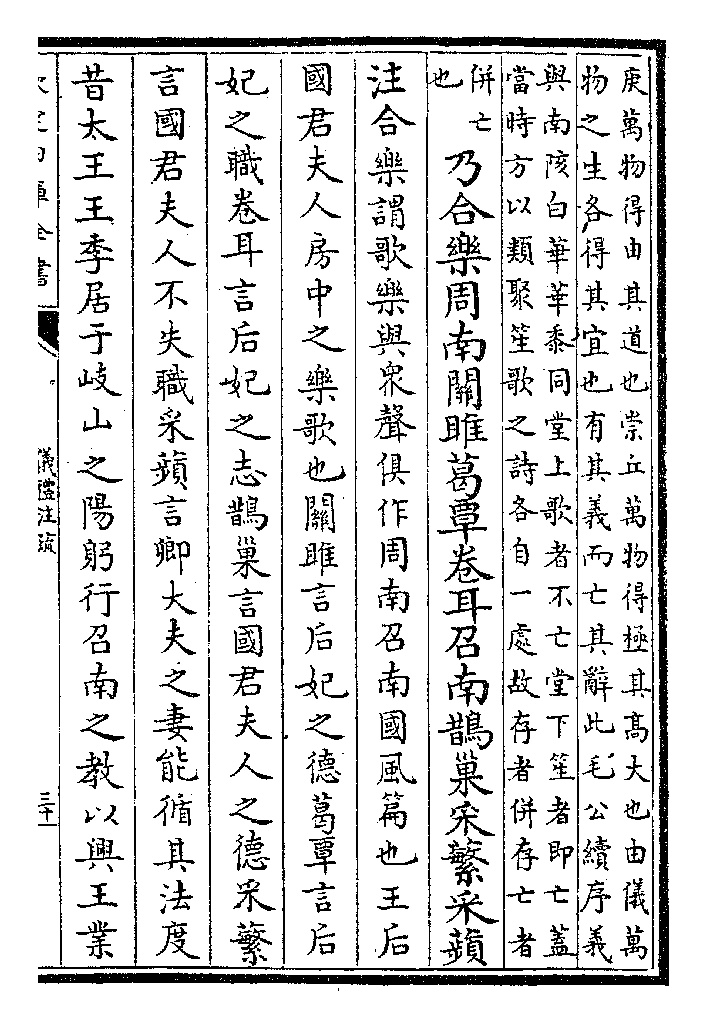 庚萬物得由其道也崇丘萬物得極其髙大也由儀萬
物之生各得其宜也有其義而亡其辭此毛公續序義
與南陔白華華黍同堂上歌者不亡堂下笙者即亡蓋
當時方以類聚笙歌之詩各自一處故存者併存亡者
併亡
也
乃合樂周南關雎葛覃卷耳召南鵲巢采蘩采蘋
注合樂謂歌樂與衆聲俱作周南召南國風篇也王后
國君夫人房中之樂歌也關雎言后妃之德葛覃言后
妃之職卷耳言后妃之志鵲巢言國君夫人之德采蘩
言國君夫人不失職采蘋言卿大夫之妻能循其法度
昔太王王季居于岐山之陽躬行召南之教以興王業
儀禮注疏
三十